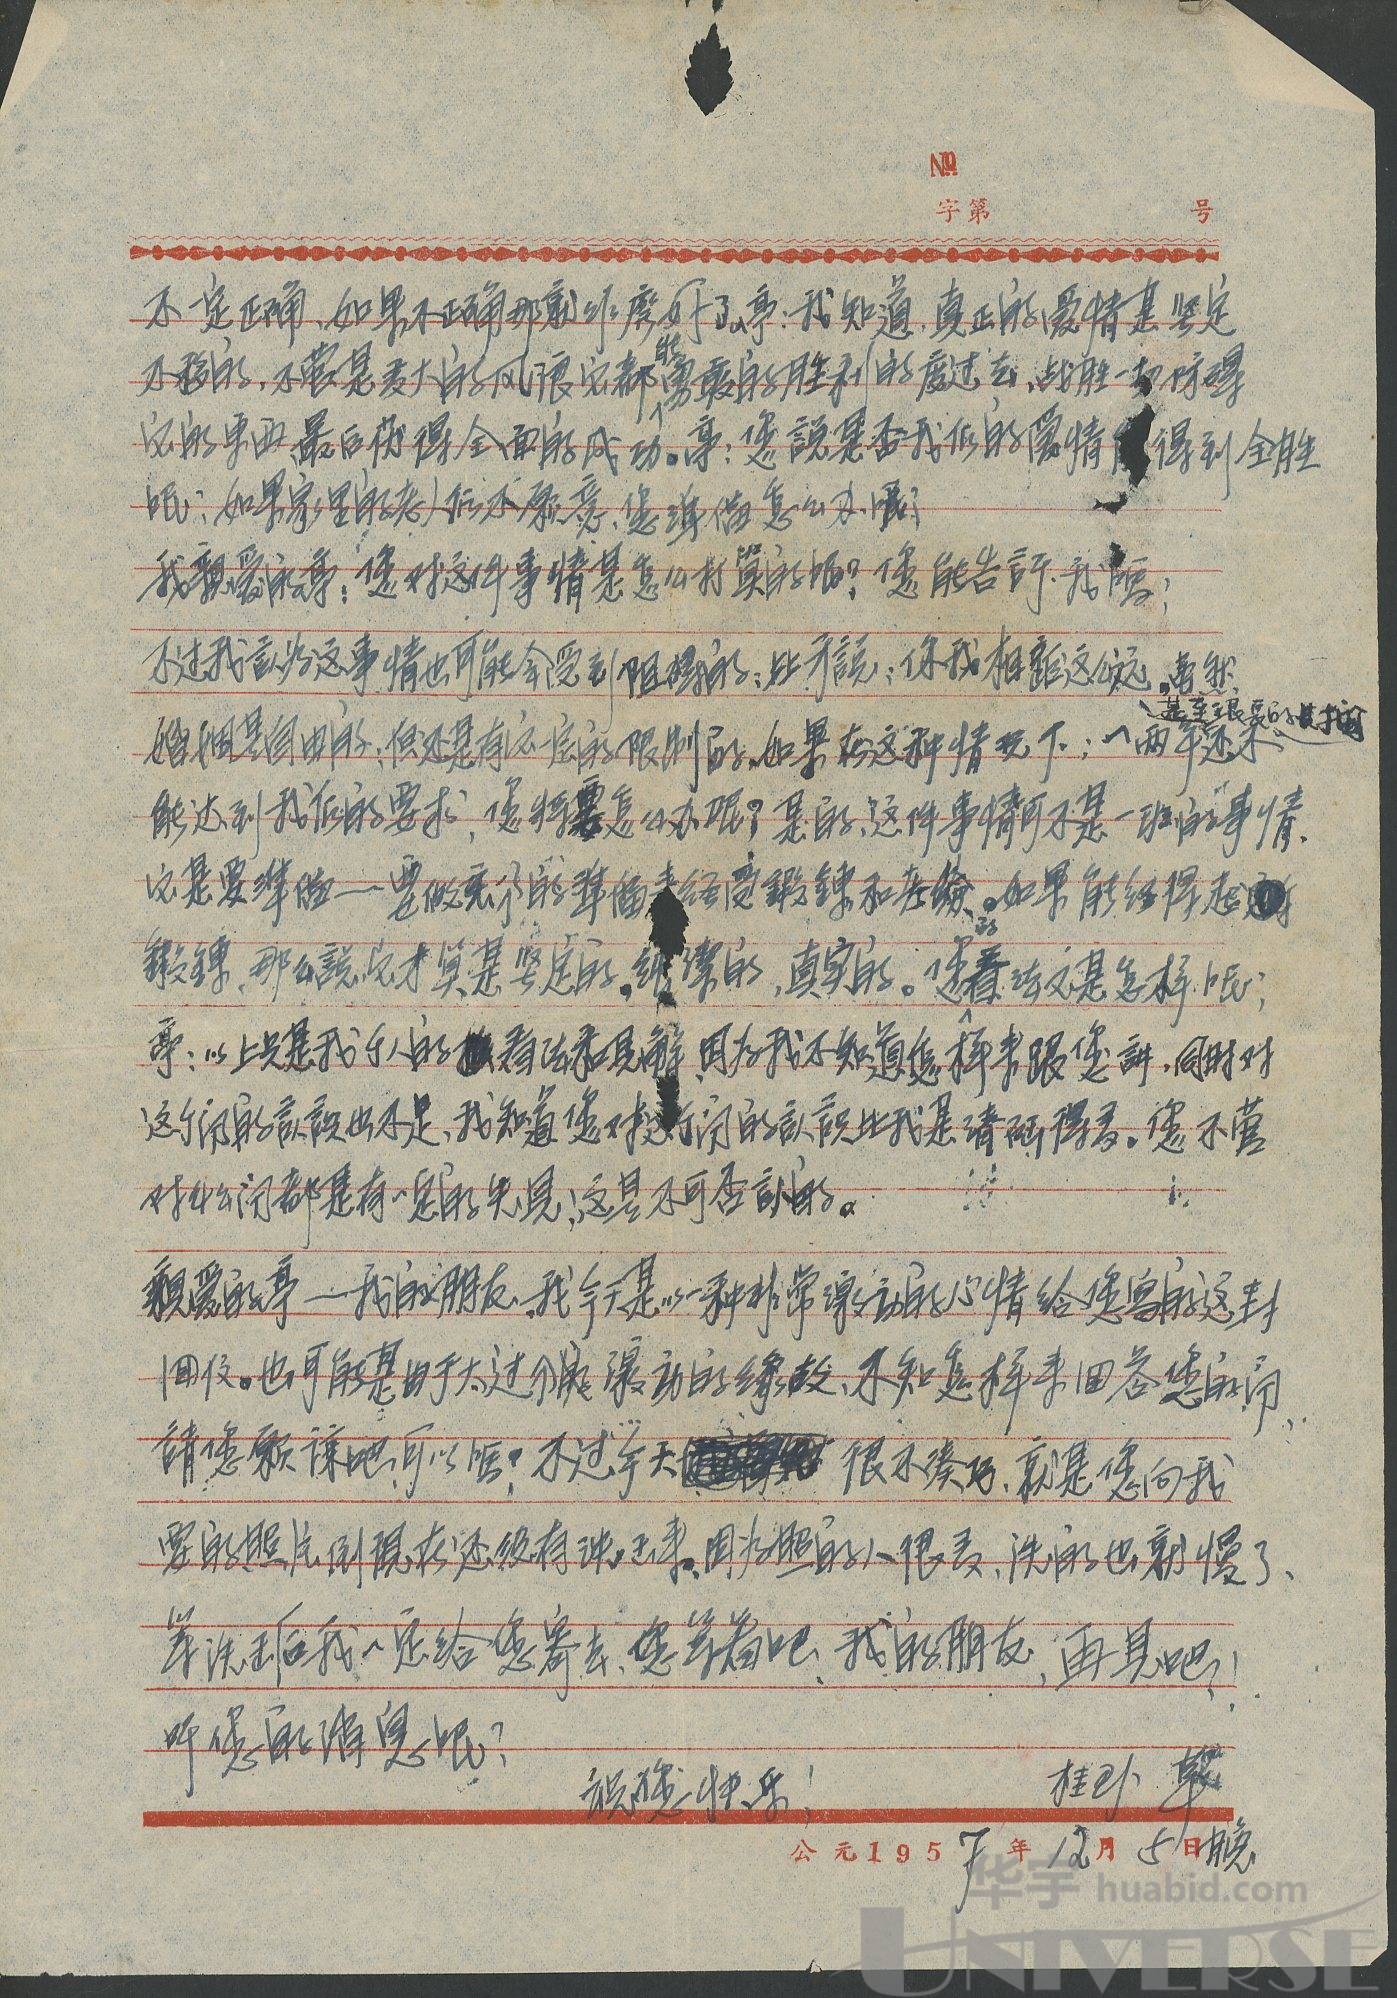 №
字第 号
不一定正确、如果不正确那就 了。亭：我知道，真正的爱情是坚定
不移的，不管是多大的风浪它都能勇敢的胜利的度过去，战胜一切防碍
它的東西最后获得全面的成功。亭：您說是否我们的爱情 得到全胜
呢；如果家里的老人们不愿意，您準備怎么办呢？
我親爱的亭：您对这件事情是怎么打算的呢？您能告訴我嗎；
不过我認为这事情也可能会受到阻碍的：比方說：你我相距这么远，虽然
婚姻是自由的，但还是有它一定的限制的。如果在这种情况下；一两年还不
甚至很長的时間
能达到我们的要求，您将要怎么办呢？是的，这件事情可不是一班的事情，
它是要準備一要做充分的準備来经受鍛鍊和考驗。如果能经得起
鍛鍊，那么說它才算是坚定的。純潔的，真实的。您的看法又是怎样呢；
亭：以上只是我个人的看法和見解，因为我不知道怎样来跟您讲，同时对
这个问的認識也不足，我知道您对这个问的認識比我是清 得多。您不管
对什么问都是有一定的先見，这是不可否認的。
親爱的亭一我的朋友，我今天是以一种非常激动的心情给您寫的这封
回信。也可能是由于太过分 激动的缘故、不知怎样来回答您的问，
請您原諒吧可以嗎？不过今天 很不湊巧，就是您向我
要的照片到現在还没有洗出来。因为照的人很多，洗的也就慢了、
等洗出后我一定给您寄去，您等着吧，我的朋友，再見吧！
听您的消息呢？
祝您快乐！ 桂 草
公元1957年12月5日晚
华宇 huabid.com
UNIVERSE